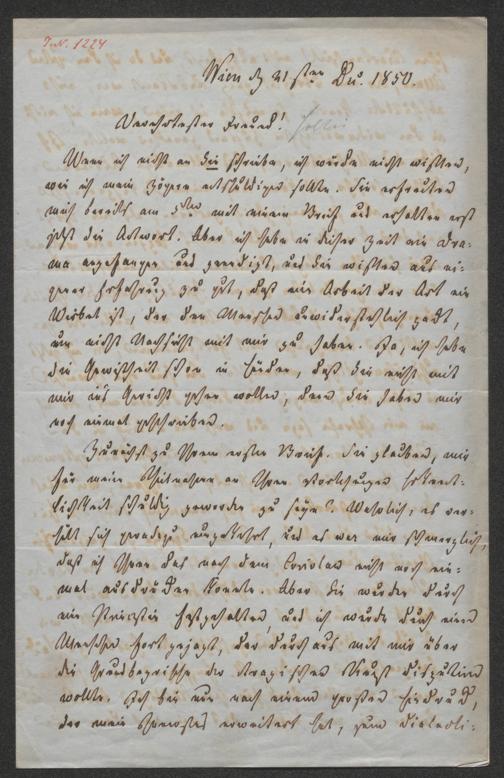 J.N. 1224
Wien d 21sten Dec. 1850.
Verehrtester Freund!
Wenn ich nicht an Sie schriebe, ich würde nicht wissen,
wie ich mein Zögern entschuldigen sollte. Sie erfreuten
mich bereits am 5ten mit einem Brief und erhalten erst
jetzt die Antwort. Aber ich habe in dieser Zeit ein Dra-
ma angefangen und geendigt, und Sie wissen aus ei-
gener Erfahrung zu gut, daß eine Arbeit der Art ein
Wirbel ist, der den Menschen unwiderstehlich packt,
um nicht Nachsicht mit mir zu haben. Ja, ich habe
die Gewißheit schon in Händen, daß Sie nicht mit
mir in's Gericht gehen wollen, denn Sie haben mir
noch einmal geschrieben.
Zunächst zu Ihrem ersten Brief. Sie glauben, mir
für meine Theilnahme an Ihren Vorlesungen Erkennt-
lichkeit schuldig geworden zu seyn? Wahrlich, es ver-
hält sich geradezu umgekehrt, und es war mir schmerzlich,
daß ich Ihnen das nach dem Coriolan nicht noch ein-
mal ausdrücken konnte. Aber Sie wurden durch
eine Fürstin festgehalten, und ich wurde durch einen
Menschen fortgejagt, der durchaus mit mir über
die Grundbegriffe der tragischen Kunst disputiren
wollte. Ich bin nun nach einem großen Eindruck,
der mein Innerstes erweitert hat, zum Dialecti-